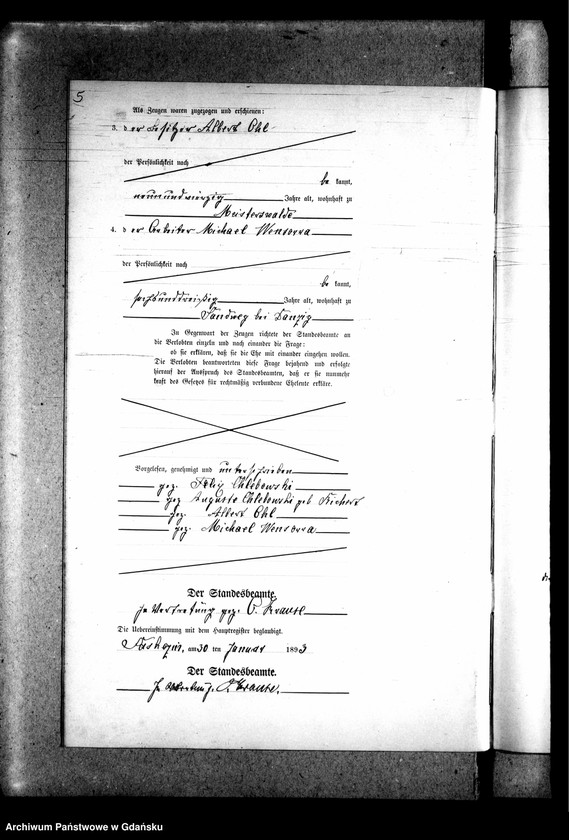 5
Als Zeugen waren zugezogen und erschienen:
3. d er Besitzer Albert Ohl
der Persönlichkeit nach
be kannt,
neunundvierzig Jahre alt, wohnhaft zu
Meisterswalde
4. d er Arbeiter Michael Wensorra
der Persönlichkeit nach
be kannt,
sechsunddreißig Jahre alt, wohnhaft zu
Sandweg bei Danzig
In Gegenwart der Zeugen richtete der Standesbeamte an
die Verlobten einzeln und nach einander die Frage:
ob sie erklären, daß sie die Ehe mit einander eingehen wollen.
Die Verlobten beantworteten diese Frage bejahend und erfolgte
hierauf der Ausspruch des Standesbeamten, daß er sie nunmehr
kraft des Gesetzes für rechtmäßig verbundene Eheleute erkläre.
Vorgelesen, genehmigt und unterschrieben
gez. Felix Chlebowski
gez. Auguste Chlebowski geb.
gez. Albert Ohl
gez. Michael Wensorra
Der Standesbeamte.
In Vertretung gez. Krause
Die Uebereinstimmung mit dem Hauptregister beglaubigt.
am 30 ten Januar 1893
Der Standesbeamte.
In Krause.
Archiwum Państwowe w Gdańsku